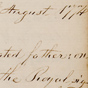 August 1774
ted father on
the Royal sig